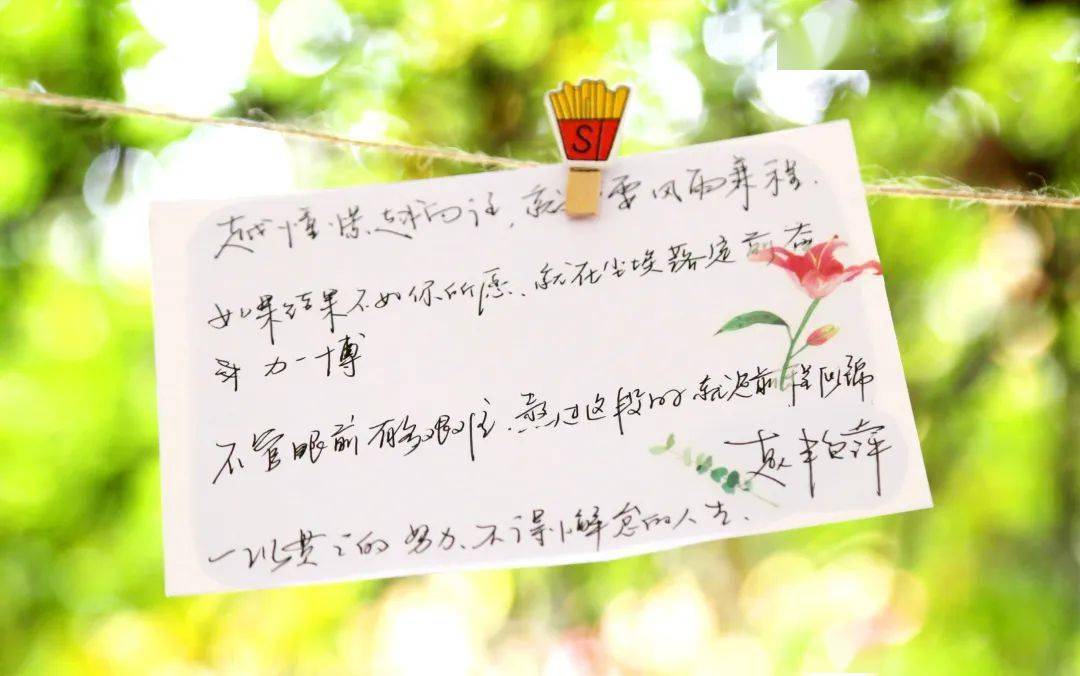 S
越憧憬越向往,就 要风雨兼程.
如果结果不如你所愿、就在尘埃落定前奋
力一博
不管眼前有多艰难、熬过这段 就是前程似锦
一以贯之的努力、不得懈怠的人生.